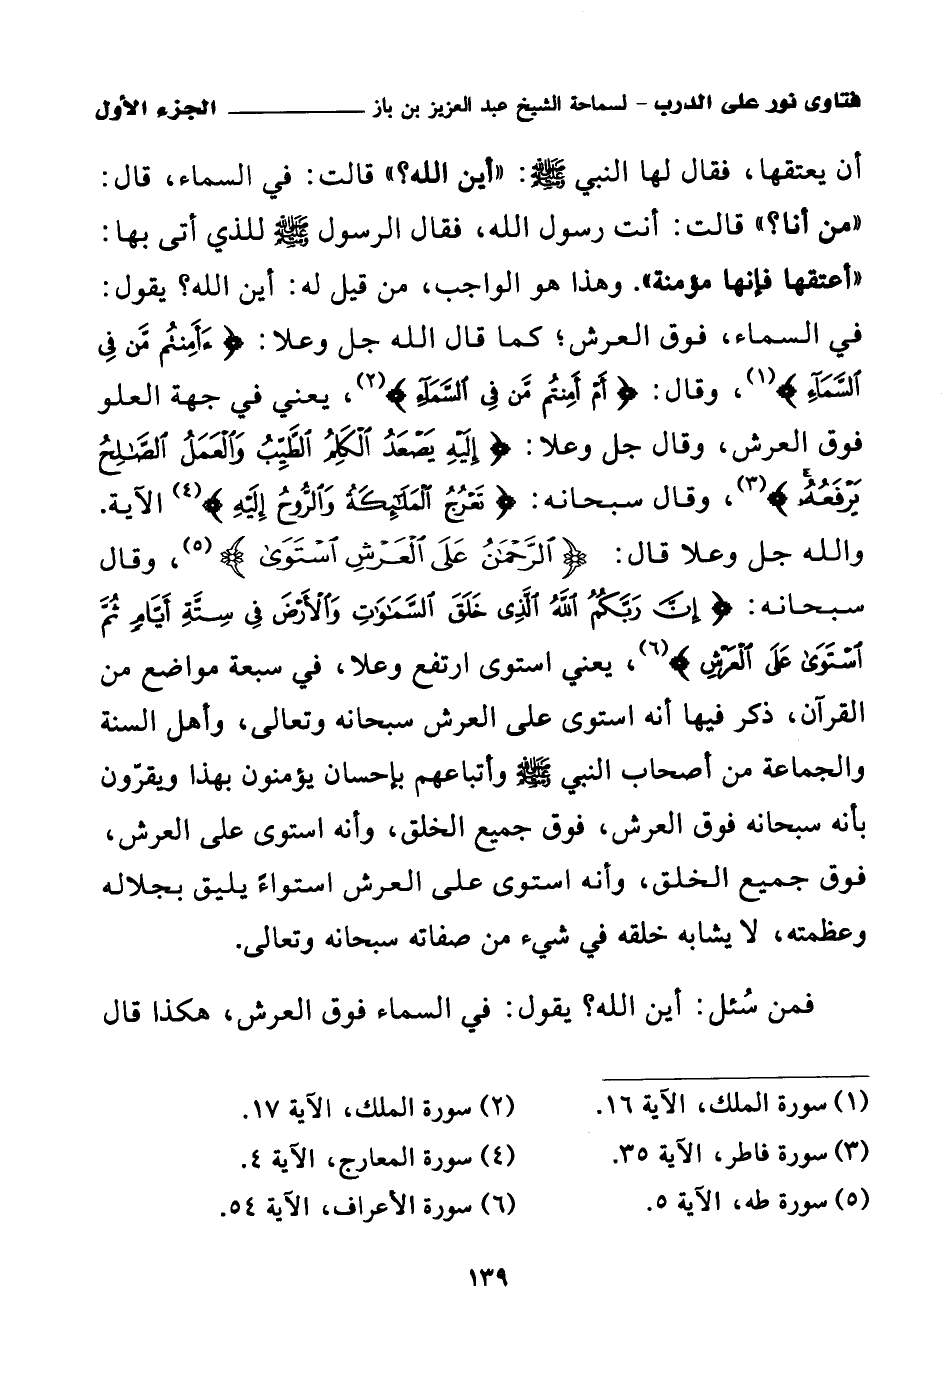 فتاوى نور على الدرب - لسماحة الشيخ عبد العزيز بن باز ـــــــــــــ الجزء الأول
أن يعتقها، فقال لها النبي ﷺ: «أين الله؟» قالت: في السماء، قال:
«من أنا؟» قالت: أنت رسول الله، فقال الرسول ﷺ للذي أتى بها:
«أعتقها فإنها مؤمنة». وهذا هو الواجب، من قيل له: أين الله؟ يقول:
في السماء، فوق العرش؛ كما قال الله جل وعلا: ﴿ ءَأَمِنتُم مَّن فِى
ٱلسَّمَآءِ ﴾(١)، وقال: ﴿ أَمْ أَمِنتُم مَّن فِى ٱلسَّمَآءِ ﴾(٢)، يعني في جهة العلو
فوق العرش، وقال جل وعلا: ﴿ إِلَيْهِ يَصْعَدُ ٱلْكَلِمُ ٱلطَّيِّبُ وَٱلْعَمَلُ ٱلصَّٰلِحُ
يَرْفَعُهُۥ ﴾(٣)، وقال سبحانه: ﴿ تَعْرُجُ ٱلْمَلَٰٓئِكَةُ وَٱلرُّوحُ إِلَيْهِ ﴾(٤) الآية.
والله جل وعلا قال: ﴿ ٱلرَّحْمَٰنُ عَلَى ٱلْعَرْشِ ٱسْتَوَىٰ ﴾(٥)، وقال
سبحانه: ﴿ إِنَّ رَبَّكُمُ ٱللَّهُ ٱلَّذِى خَلَقَ ٱلسَّمَٰوَٰتِ وَٱلْأَرْضَ فِى سِتَّةِ أَيَّامٍ ثُمَّ
ٱسْتَوَىٰ عَلَى ٱلْعَرْشِ ﴾(٦)، يعني استوى ارتفع وعلا، في سبعة مواضع من
القرآن، ذكر فيها أنه استوى على العرش سبحانه وتعالى، وأهل السنة
والجماعة من أصحاب النبي ﷺ وأتباعهم بإحسان يؤمنون بهذا ويقرّون
بأنه سبحانه فوق العرش، فوق جميع الخلق، وأنه استوى على العرش،
فوق جميع الخلق، وأنه استوى على العرش استواءً يليق بجلاله
وعظمته، لا يشابه خلقه في شيء من صفاته سبحانه وتعالى.
فمن سُئل: أين الله؟ يقول: في السماء فوق العرش، هكذا قال
(١) سورة الملك، الآية ١٦.
(٢) سورة الملك، الآية ١٧.
(٣) سورة فاطر، الآية ٣٥.
(٤) سورة المعارج، الآية ٤.
(٥) سورة طه، الآية ٥.
(٦) سورة الأعراف، الآية ٥٤.
١٣٩